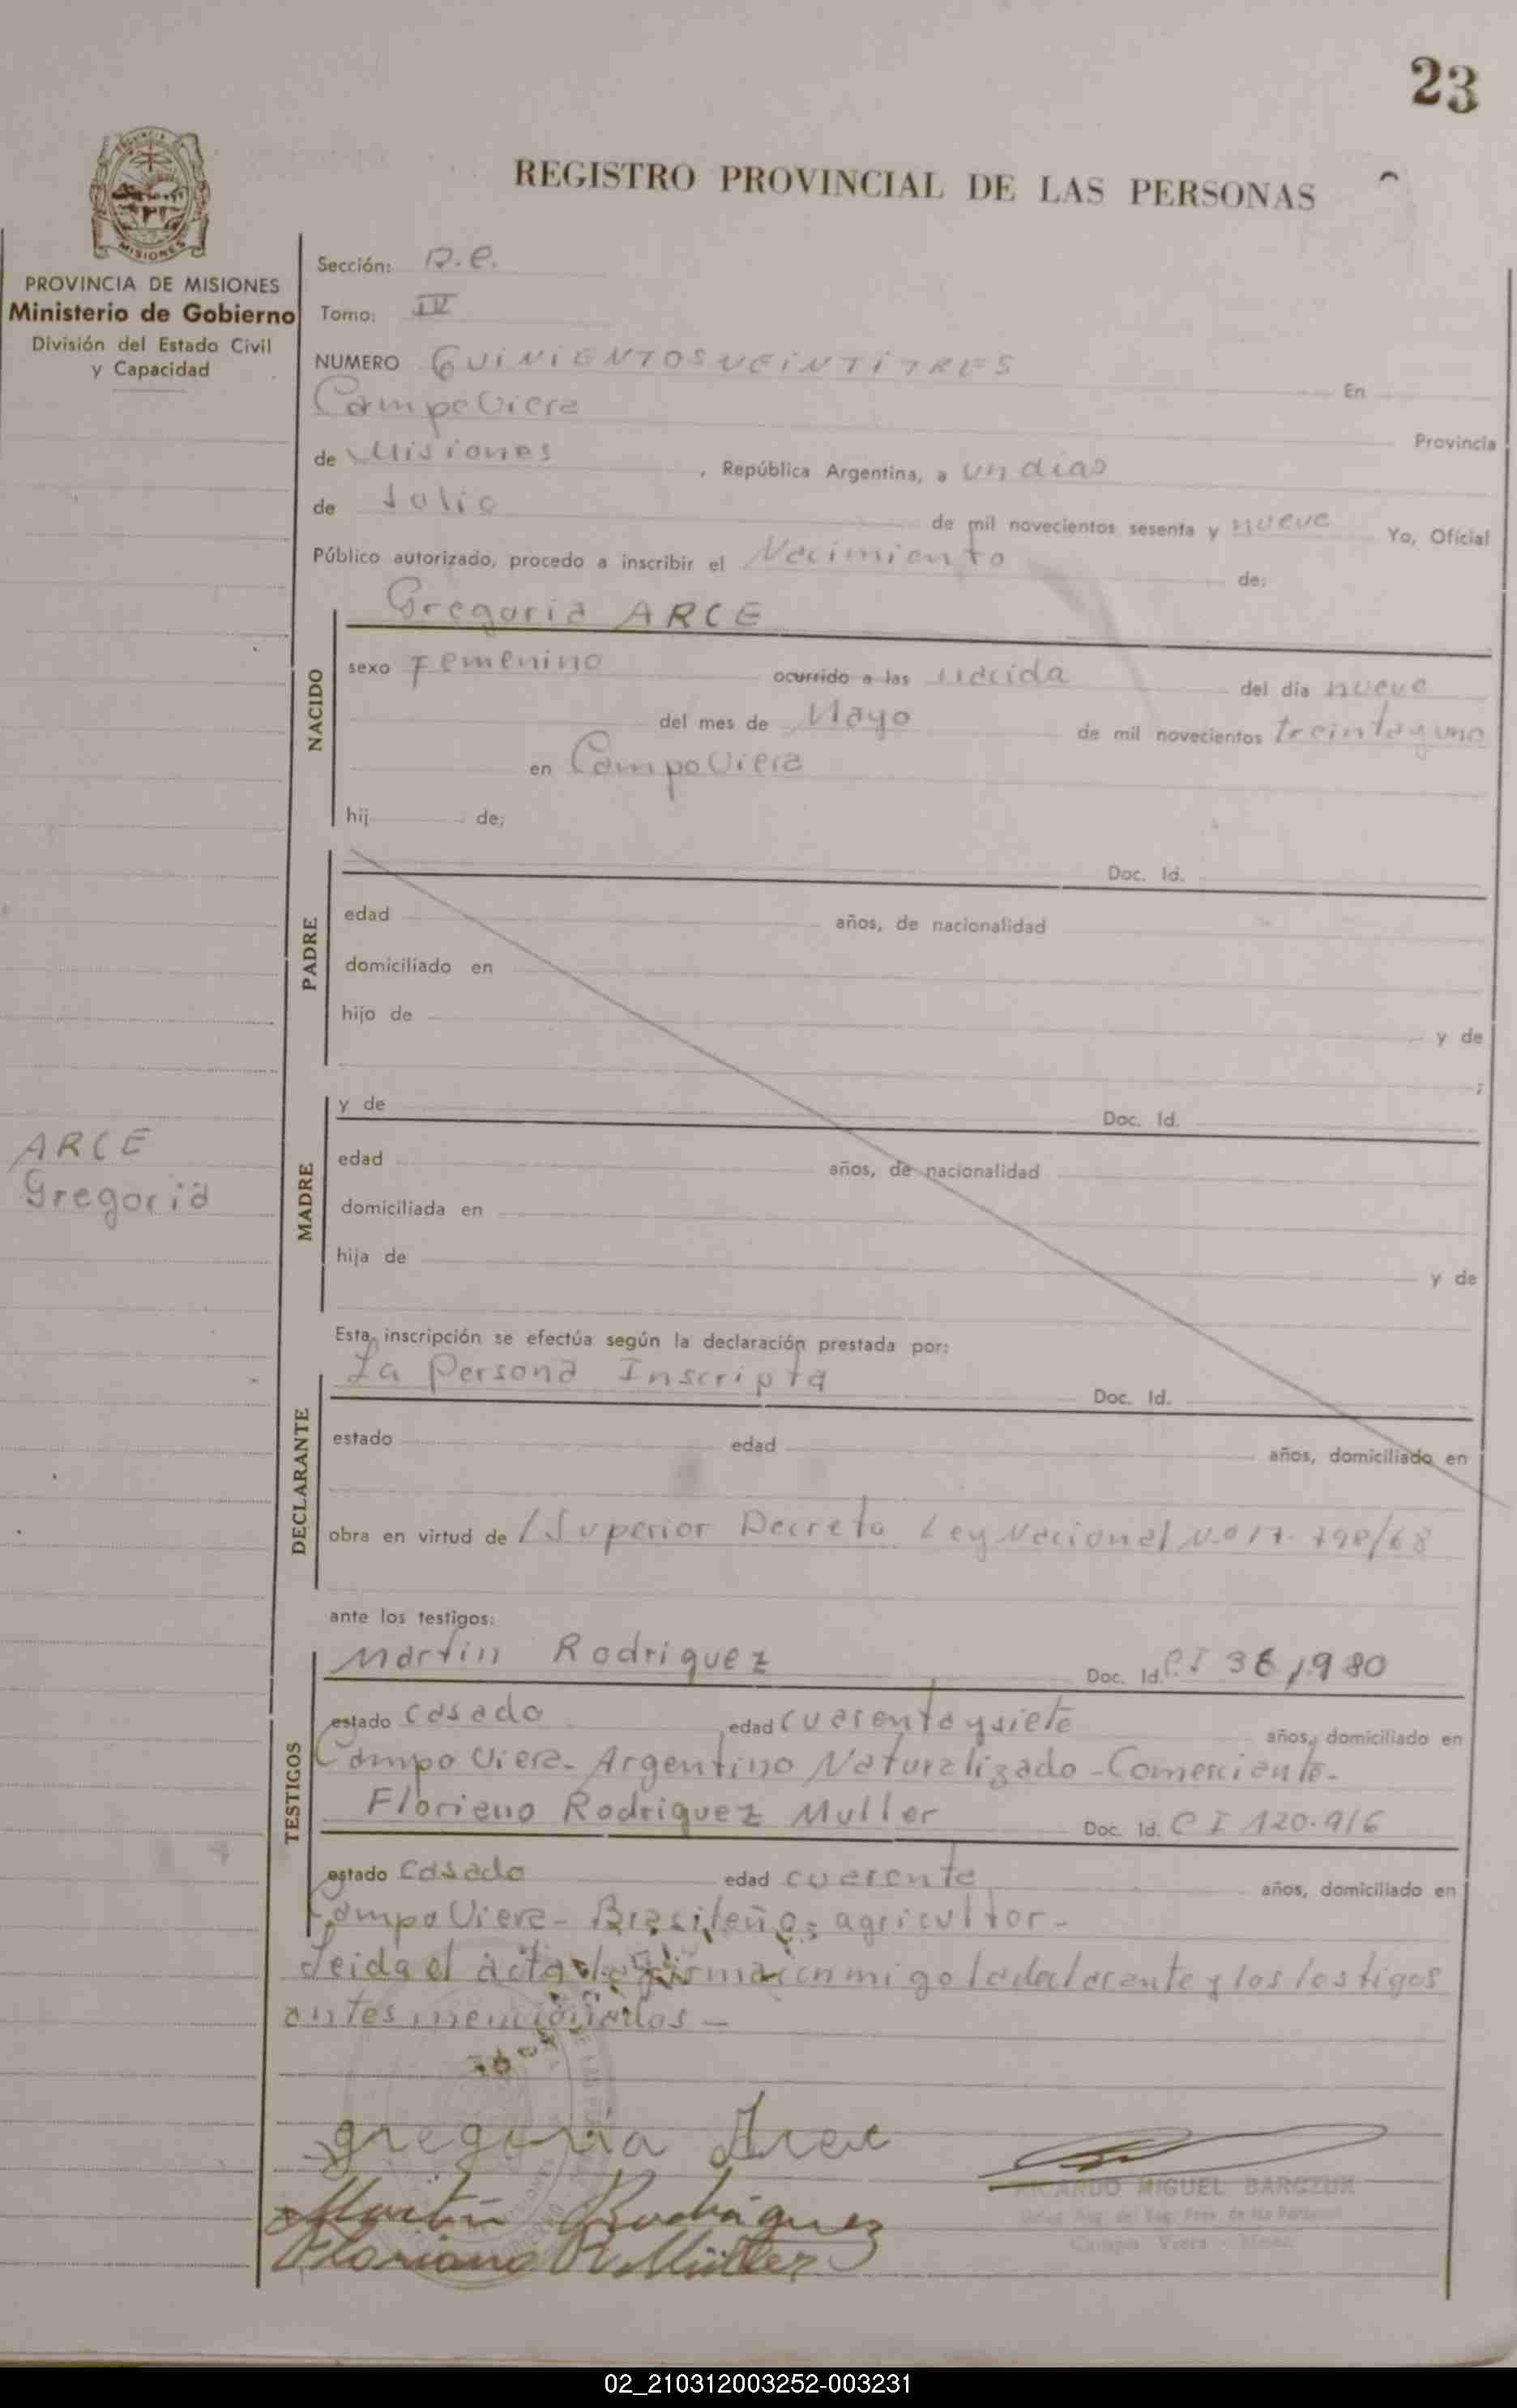 23
REGISTRO PROVINCIAL DE LAS PERSONAS
MISIONES
PROVINCIA DE MISIONES
Ministerio de Gobierno
División del Estado Civil
y Capacidad
Sección: D.e.
Tomo: IV
NUMERO QUINIENTOS VEINTITRES En
Campo Viera Provincia
de Misiones, República Argentina, a un dias
de Julio de mil novecientos sesenta y nueve Yo, Oficial
Público autorizado, procedo a inscribir el Nacimiento de:
NACIDO
Gregoria ARCE
sexo Femenino ocurrido a las nacida del día nueve
del mes de Mayo de mil novecientos treinta y uno
en Campo Viera
hij de:
PADRE
Doc. Id.
edad años, de nacionalidad
domiciliado en
hijo de y de
;
MADRE
y de Doc. Id.
edad años, de nacionalidad
domiciliada en
hija de y de
ARCE
Gregoria
Esta inscripción se efectúa según la declaración prestada por:
DECLARANTE
La Persona Inscripta Doc. Id.
estado edad años, domiciliado en
obra en virtud de / Superior Decreto Ley Nacional N.º 17.798/68
ante los testigos:
TESTIGOS
Martin Rodriguez Doc. Id. C.I 361.980
estado Casado edad cuarenta y siete años, domiciliado en
Campo Viera - Argentino Naturalizado - Comerciante -
Floriano Rodriguez Muller Doc. Id. C I 120.916
estado Casado edad cuarenta años, domiciliado en
Campo Viera - Brasileño, agricultor -
Leida el acta la firman conmigo la declarante y los testigos
antes mencionados -
gregoria Arce
Martín Rodríguez
Floriano R Müller
RICARDO MIGUEL BARCZUK
Campo Viera
02_210312003252-003231